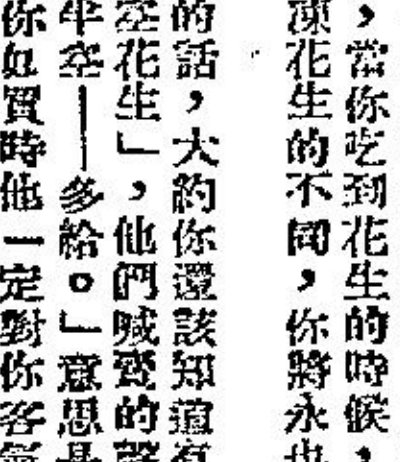 ，當你吃到花生的時候，
凍花生的不同，你將永也
的話，大約你還該知道有
空花生」，他們喊賣的聲
半空——多給。」意思是
你如買時他一定對你客氣